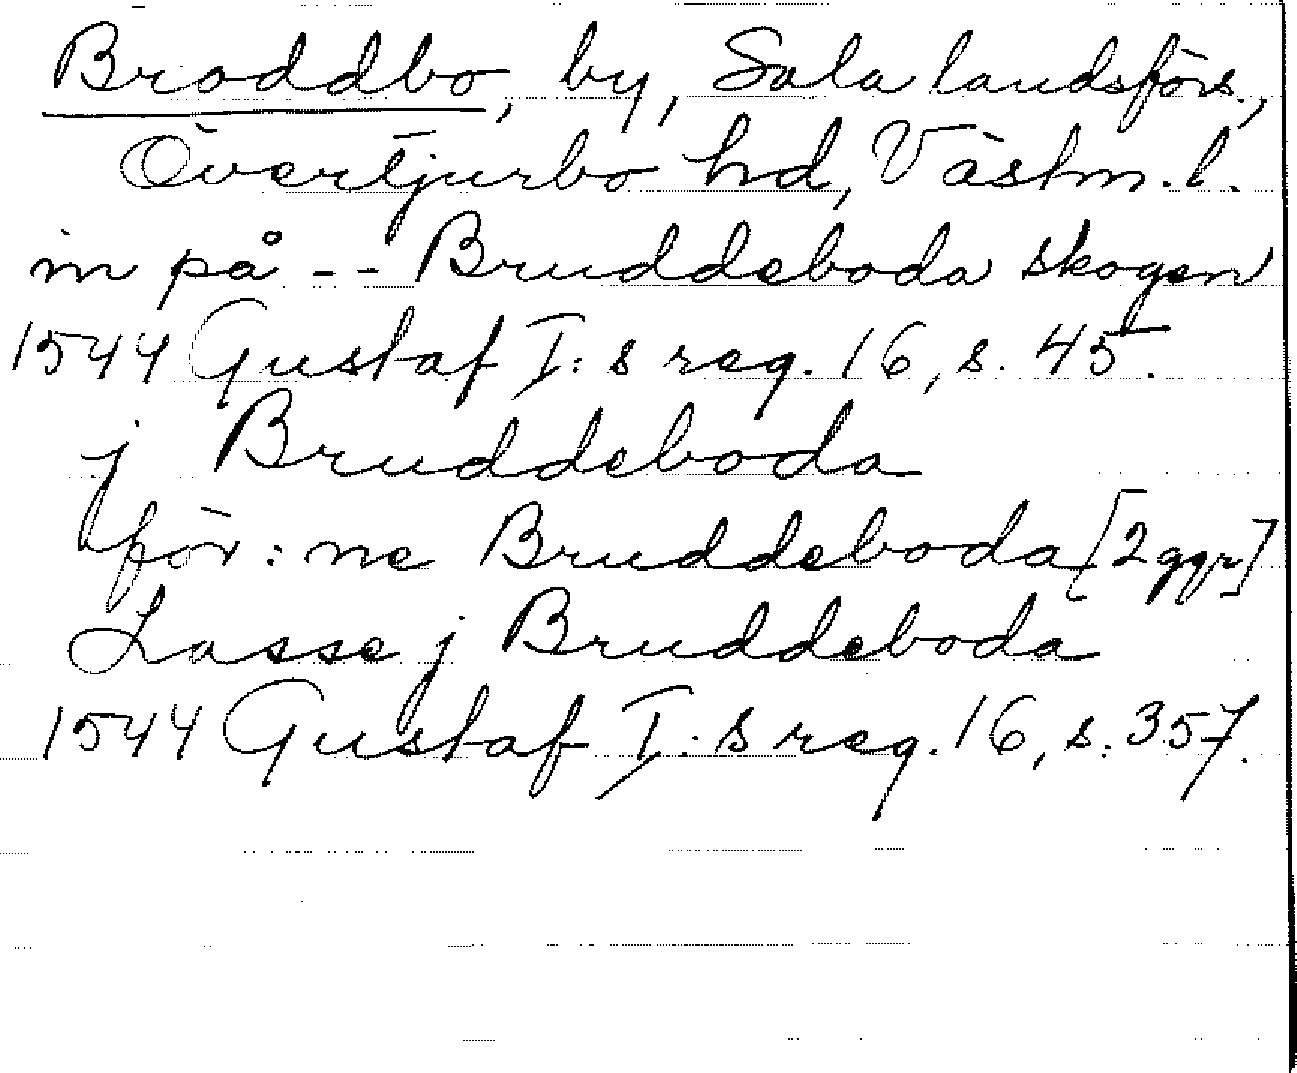 Broddbo, by, Sala landsförs.,
Övertjurbo hd, Västm. l.
in på -- Bruddeboda skogen
1544 Gustaf I: s reg. 16, s. 45.
j Bruddeboda
för: ne Bruddeboda [2 ggr]
Lasse j Bruddeboda
1544 Gustaf I: s reg. 16, s. 357.